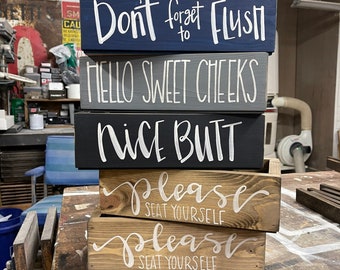 Don't forget to Flush
HELLO SWEET CHEEKS
NICE BUTT
please
SEAT YOURSELF
please
SEAT YOURSELF